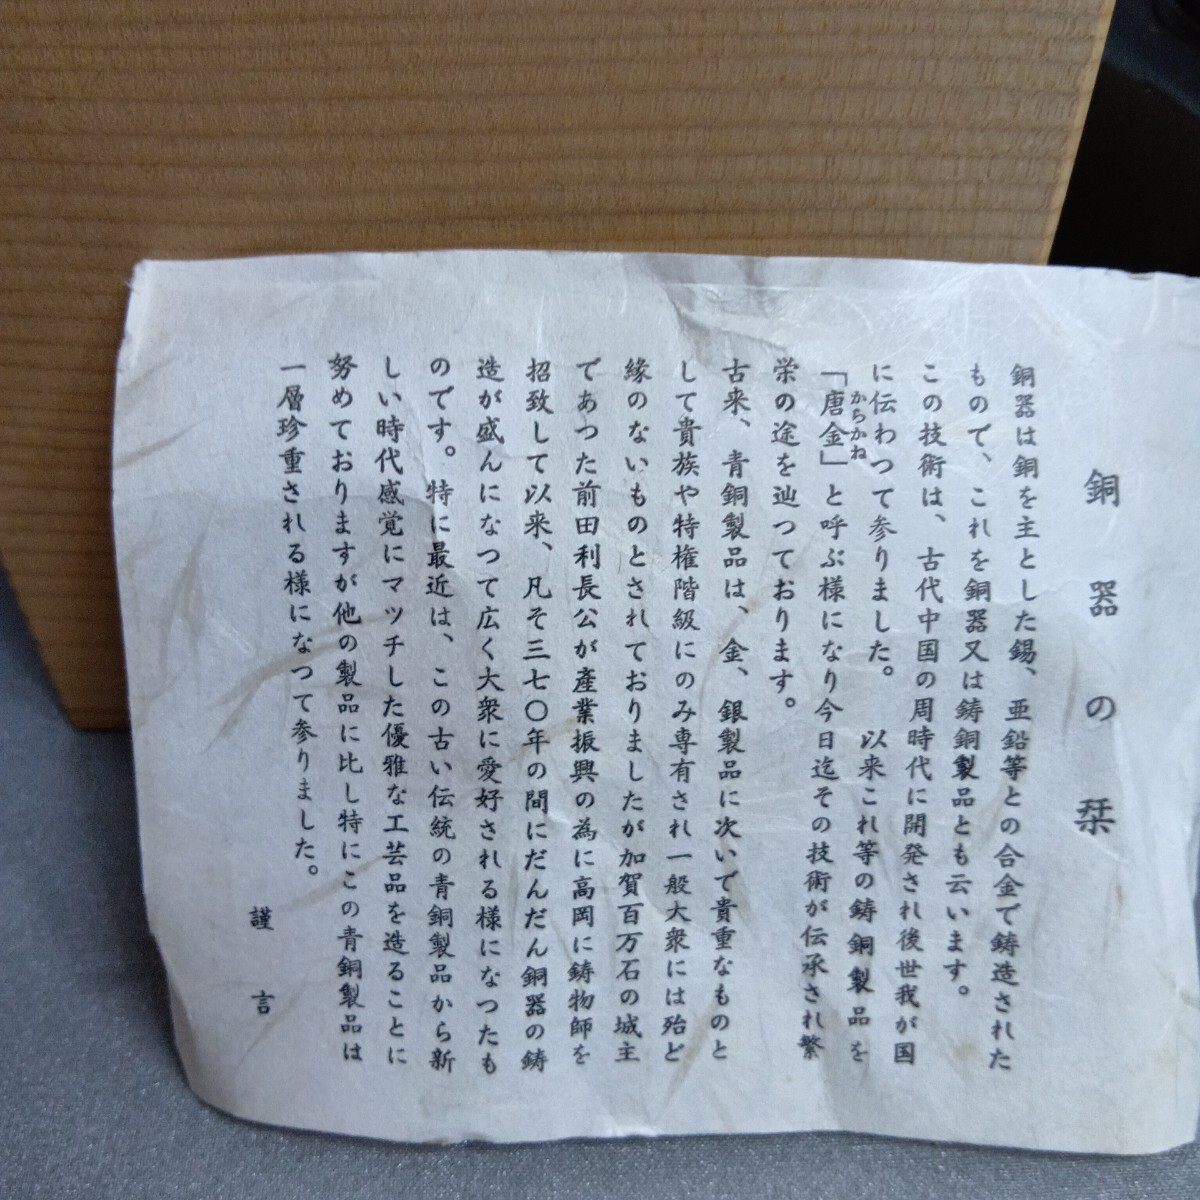 銅器の栞
銅器は銅を主とした錫、亜鉛等との合金で鋳造された
もので、これを銅器又は鋳銅製品とも云います。
この技術は、古代中国の周時代に開発され後世我が国
に伝わつて参りました。　以来これ等の鋳銅製品を
からかね
「唐金」と呼ぶ様になり今日迄その技術が伝承され繁
栄の途を辿つております。
古来、青銅製品は、金、銀製品に次いで貴重なものと
して貴族や特権階級にのみ専有され一般大衆には殆ど
縁のないものとされておりましたが加賀百万石の城主
であつた前田利長公が産業振興の為に高岡に鋳物師を
招致して以来、凡そ三七〇年の間にだんだん銅器の鋳
造が盛んになつて広く大衆に愛好される様になつたも
のです。特に最近は、この古い伝統の青銅製品から新
しい時代感覚にマツチした優雅な工芸品を造ることに
努めておりますが他の製品に比し特にこの青銅製品は
一層珍重される様になつて参りました。
謹言